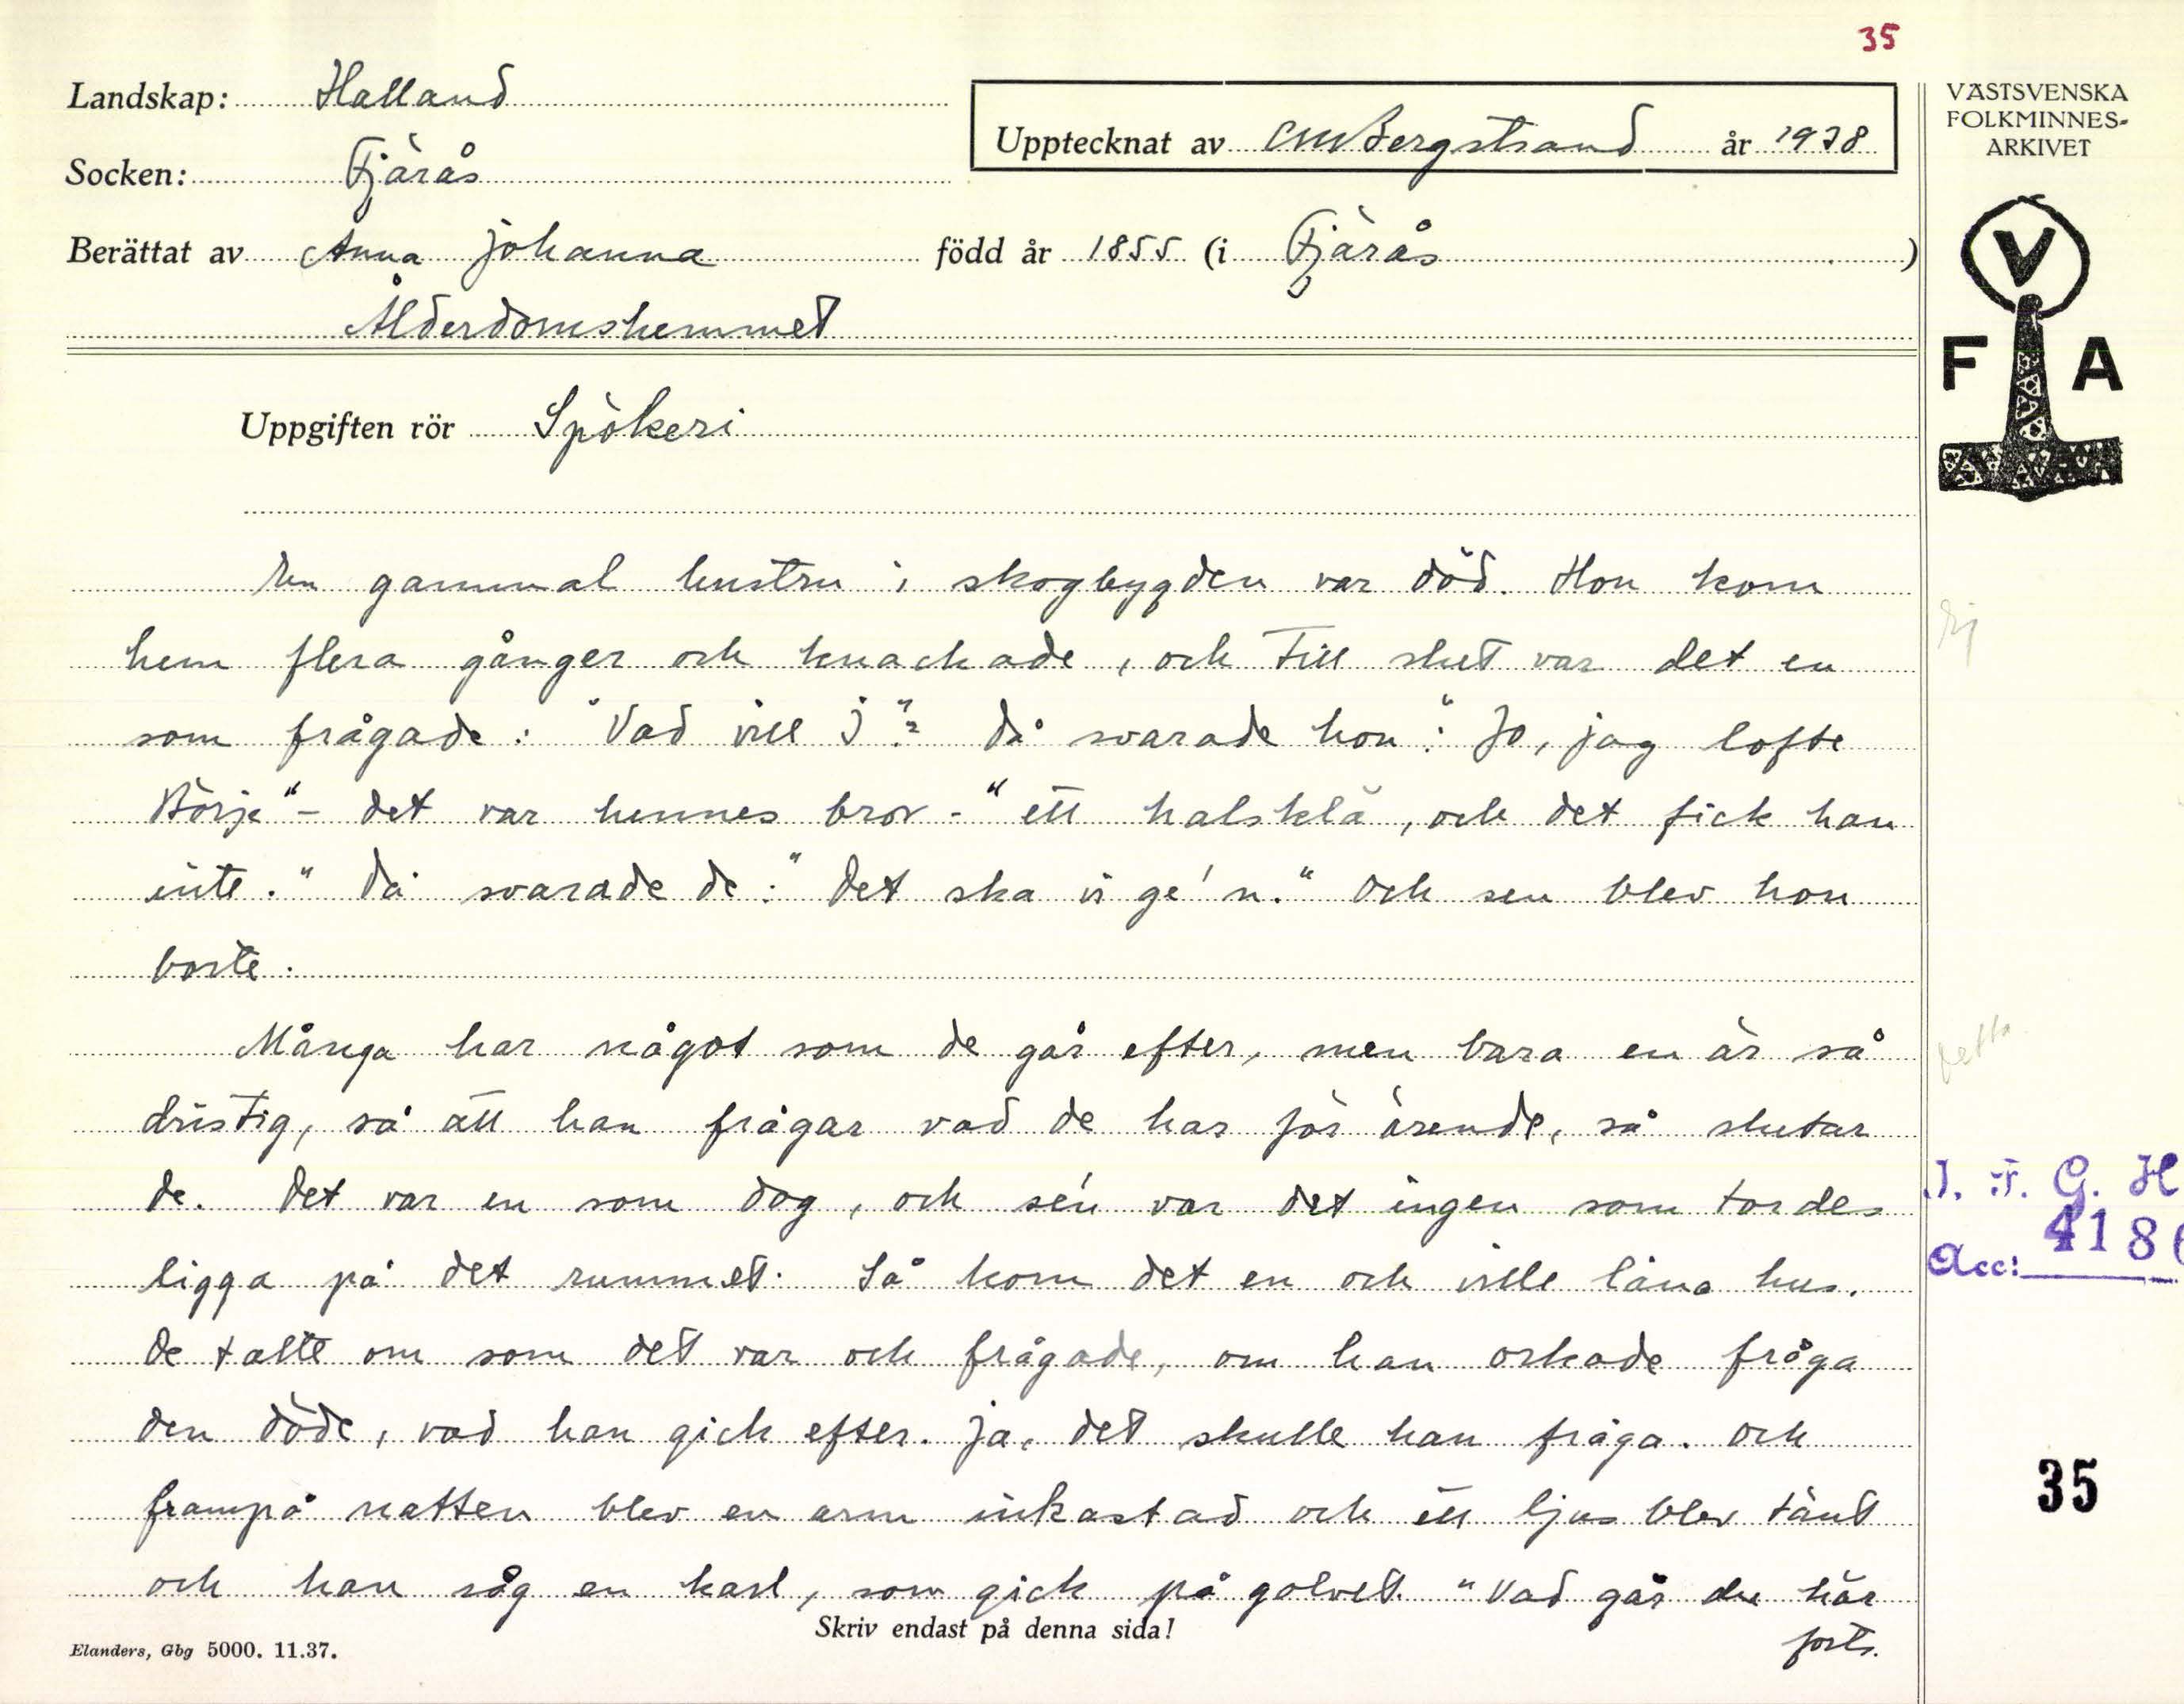 35
Landskap: Halland
Upptecknat av CMBergstrand år 1938
Socken: Fjärås
Berättat av Anna Johanna född år 1855 (i Fjärås )
Ålderdomshemmet
VÄSTSVENSKA
FOLKMINNES-
ARKIVET
V
F A
Uppgiften rör Spökeri
En gammal hustru i skogbygden var död. Hon kom
hem flera gånger och knackade, och till slut var det en
som frågade: "Vad vill I"? Då svarade hon: "Jo, jag lofte
Börje" - det var hennes bror - "ett halsklä, och det fick han
inte." Då svarade de: "Det ska vi ge'n." Och sen blev hon
borte.
Många har något som de går efter, men bara en är så
dristig, så att han frågar vad de har för ärende, så slutar
de. Det var en som dog, och sen var det ingen som tordes
ligga på det rummet. Så kom det en och ville låna hus.
De talte om som det var och frågade, om han orkade fråga
den döde, vad han gick efter. Ja, det skulle han fråga. Och
frampå natten blev en arm inkastad och ett ljus blev tänt
och han såg en karl, som gick på golvet. "Vad går du här
forts.
Ej
detta
I. F. G. H
Acc: 4186
35
Skriv endast på denna sida!
Elanders, Gbg 5000. 11.37.